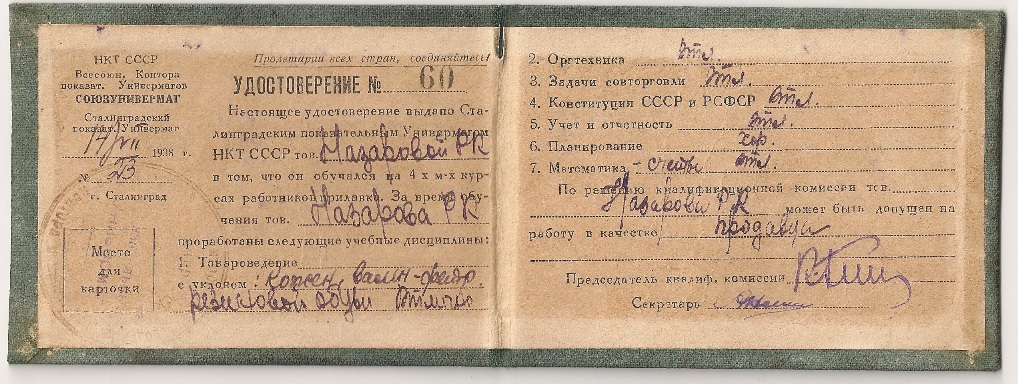 НКТ СССР
Всесоюн. Контора
показат. Универмагов
СОЮЗУНИВЕРМАГ
Сталинградский
показат. Универмаг
14/VII 1938 г.
№ 25
г. Сталинград
Место
для
карточки
Пролетарии всех стран, соединяйтесь!
УДОСТОВЕРЕНИЕ № 60
Настоящее удостоверение выдано Ста-
линградским показательным Универмагом
НКТ СССР тов. Назаровой Р К
в том, что он обучался на 4 х м-х кур-
сах работников прилавка. За время обу-
чения тов. Назарова Р К
проработаны следующие учебные дисциплины:
1. Товароведение
с уклоном: кожен, валян-фетр.
резиновой обуви Отлично
2. Оргтехника Отл.
3. Задачи совторговли Отл.
4. Конституция СССР и РСФСР Отл.
5. Учет и отчетность Отл.
6. Планирование хор.
7. Математика - счеты Отл.
По решению квалификационной комиссии тов.
Назарова Р К может быть допущен на
работу в качестве продавца
Председатель квалиф. комиссии
Секретарь